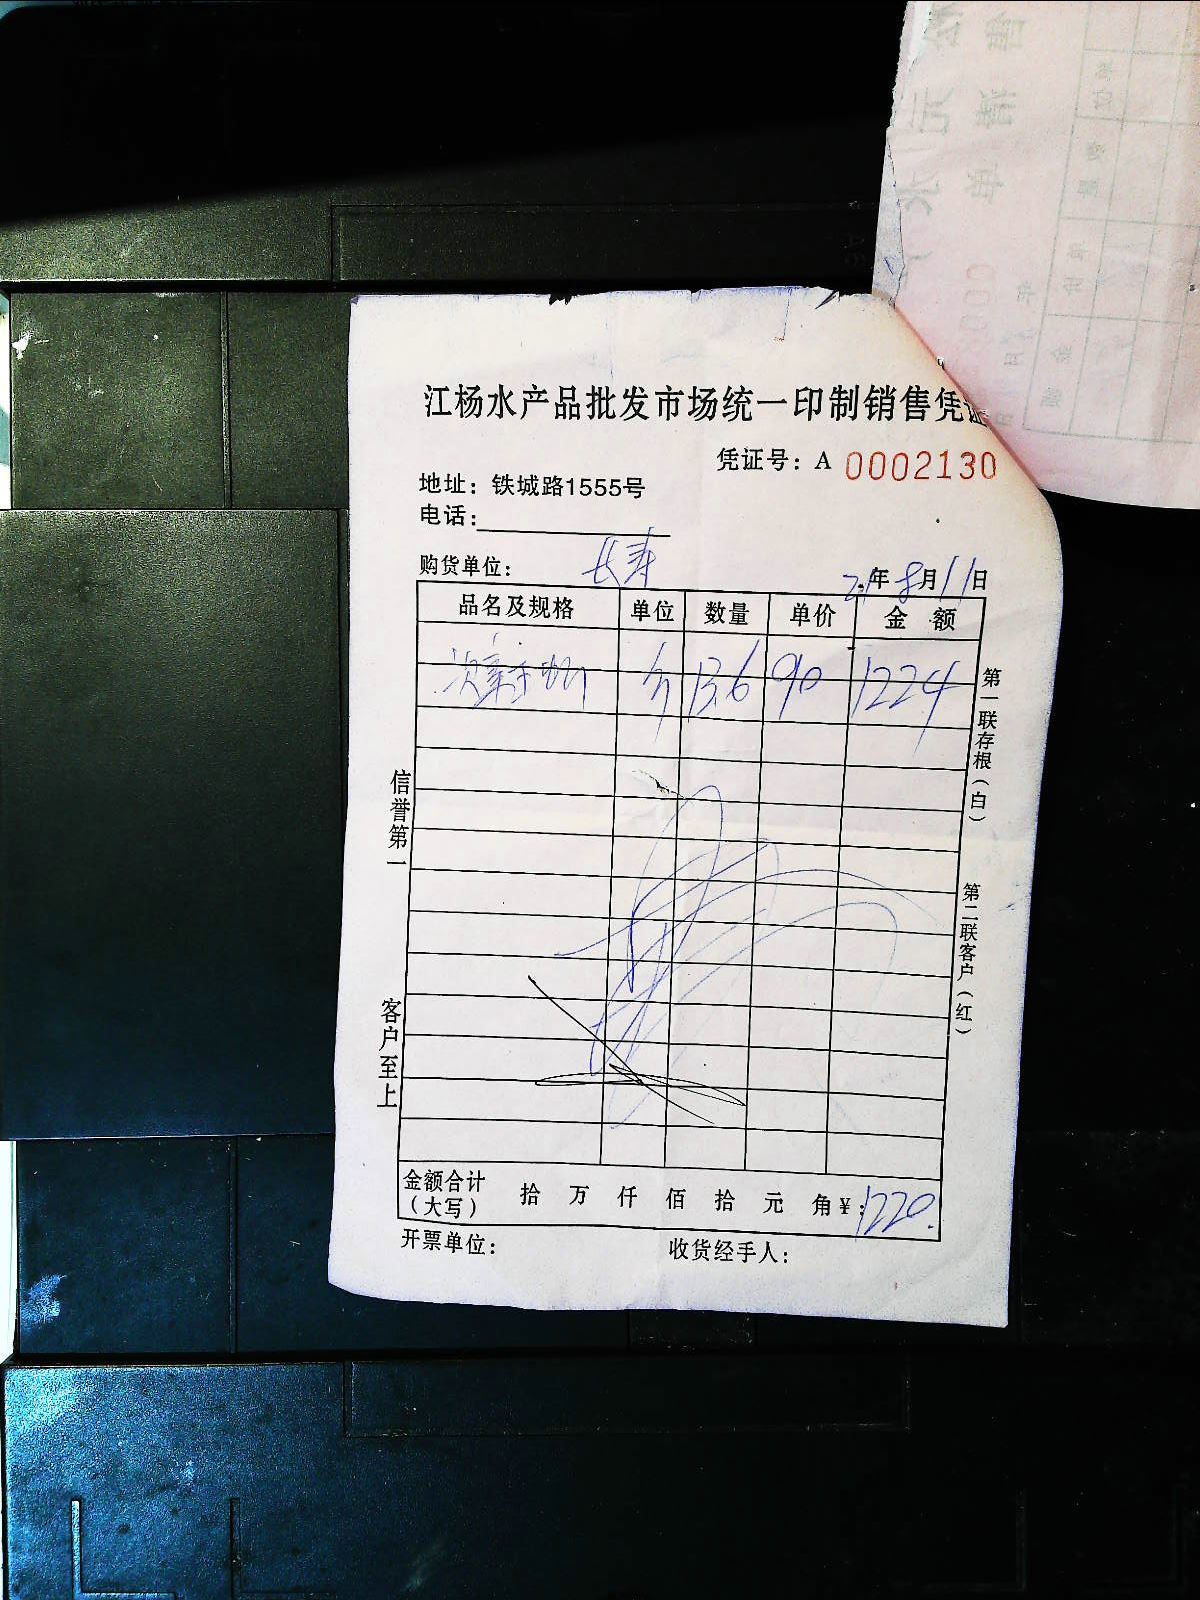 江杨水产品批发市场统一印制销售凭证
凭证号：A 0002130
地址：铁城路1555号
电话：
购货单位： 长寿 21年8月11日
品名及规格 单位 数量 单价 金 额
斤 13.6 90 1224
信誉第一
客户至上
第一联存根（白）
第二联客户（红）
金额合计（大写） 拾 万 仟 佰 拾 元 角 ¥：1220.
开票单位： 收货经手人：